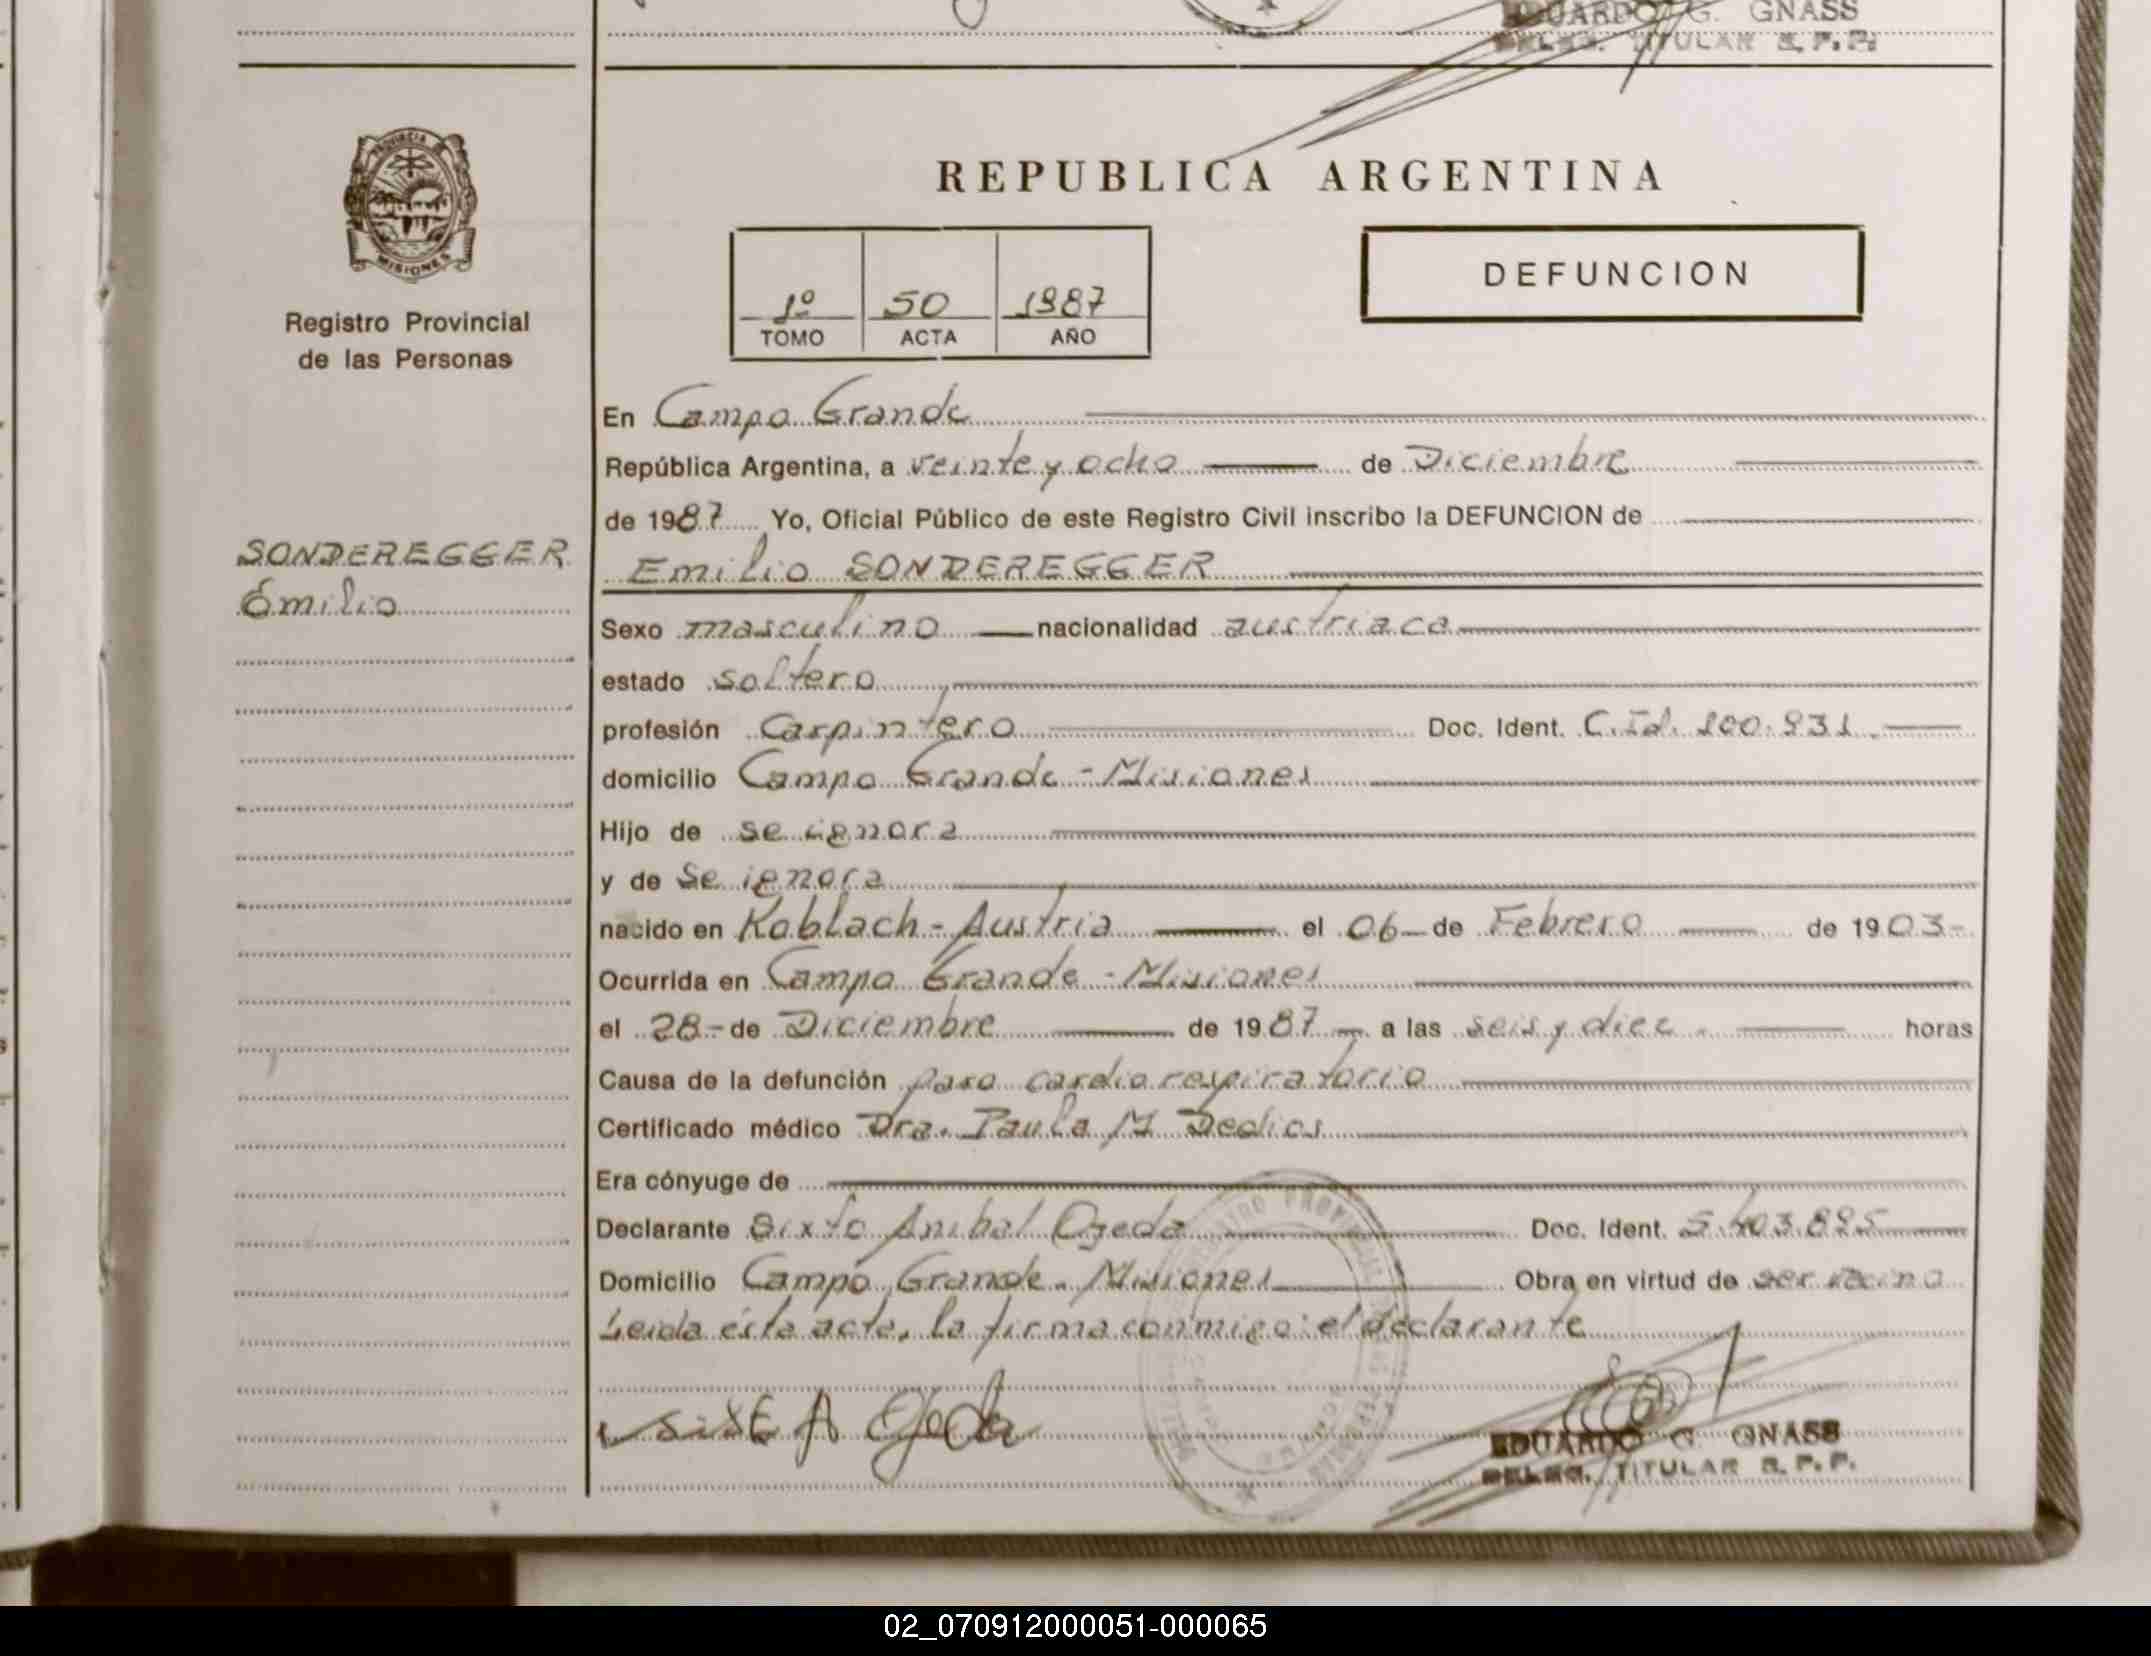 EDUARDO G. GNASS
DELEG. TITULAR R.P.P.
PROVINCIA DE
MISIONES
Registro Provincial
de las Personas
REPUBLICA ARGENTINA
1º 50 1987
TOMO ACTA AÑO
DEFUNCION
SONDEREGGER
Emilio
En Campo Grande
República Argentina, a veinte y ocho de Diciembre
de 1987 Yo, Oficial Público de este Registro Civil inscribo la DEFUNCION de
Emilio SONDEREGGER
Sexo masculino nacionalidad austriaca
estado soltero
profesión Carpintero Doc. Ident. C.Id.
domicilio Campo Grande - Misiones
Hijo de se ignora
y de se ignora
nacido en Koblach - Austria el 06 de Febrero de 1903-
Ocurrida en Campo Grande - Misiones
el 28- de Diciembre de 1987 - a las seis y diez . horas
Causa de la defunción paro cardio respiratorio
Certificado médico Dra. Paula M Dedios
Era cónyuge de
Declarante Sixto Anibal Ojeda Doc. Ident. 5.403.895
Domicilio Campo Grande - Misiones Obra en virtud de ser vecino
Leida ésta acta, la firma conmigo: el declarante
EDUARDO G. GNASS
DELEG. TITULAR R.P.P.
02_070912000051-000065